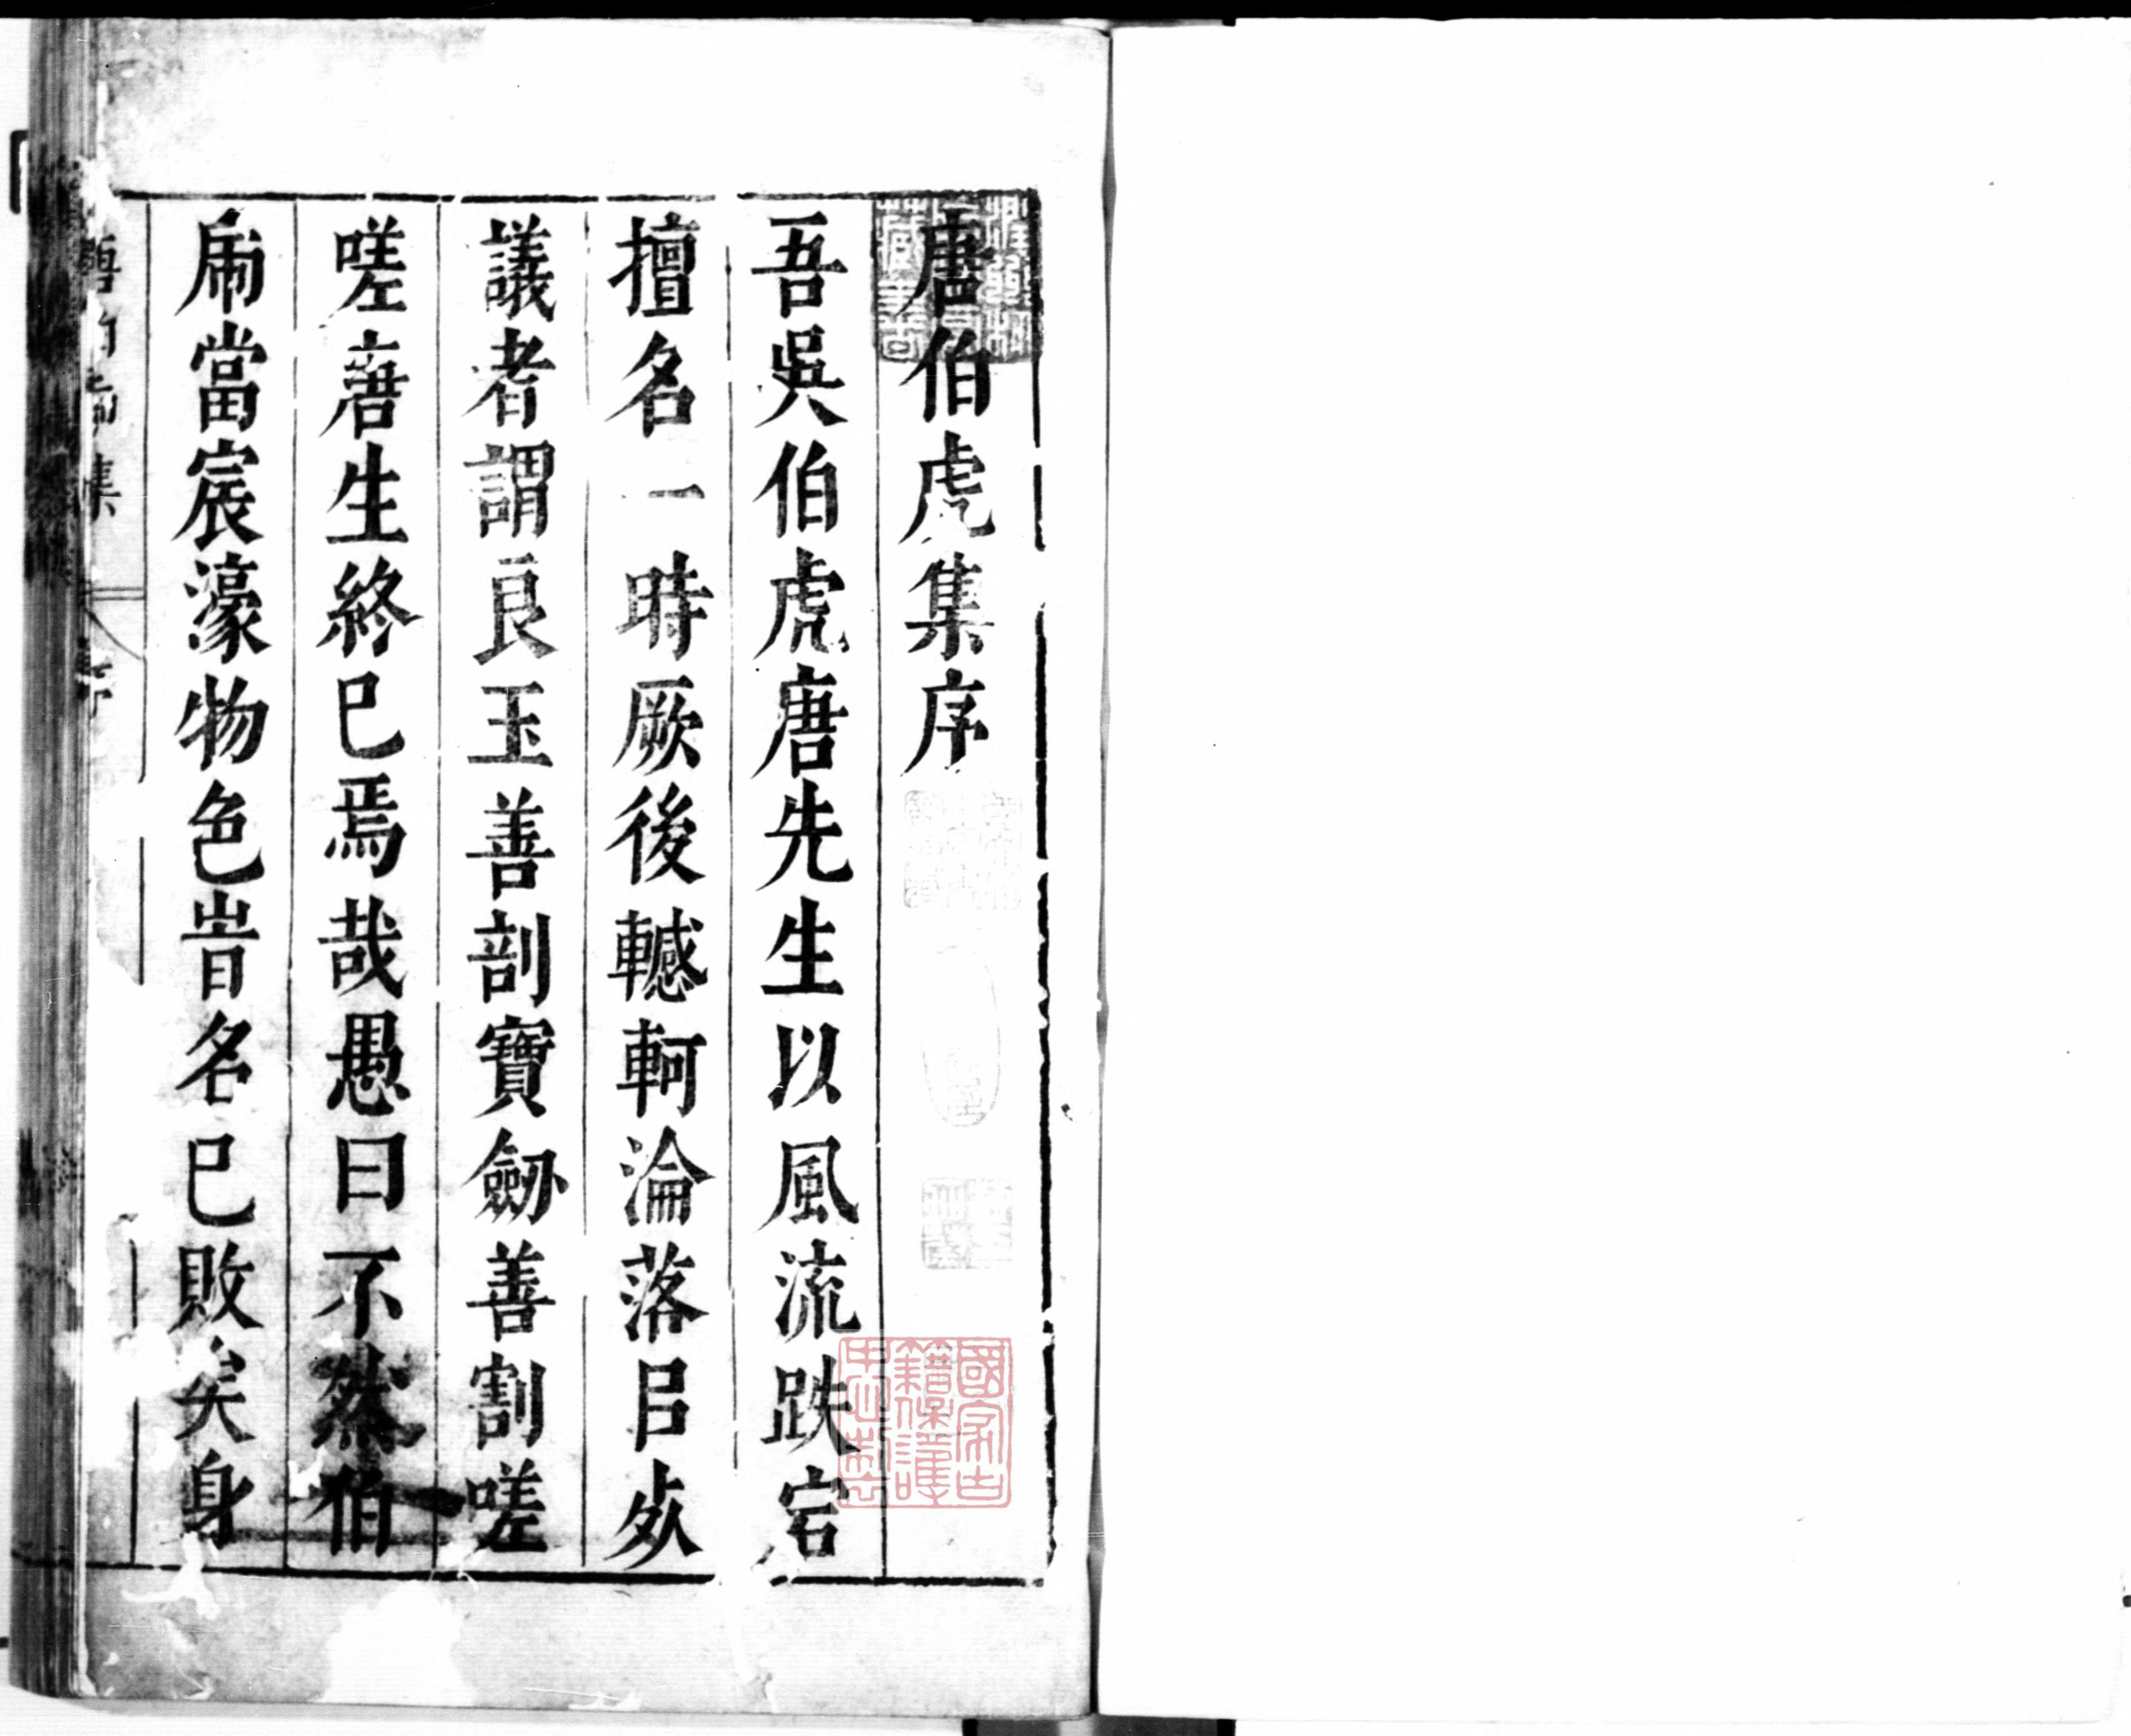 唐伯虎集序
吾吳伯虎唐先生以風流跌宕
擅名一時厥後轗軻淪落㠯歿
議者謂良玉善剖寶劒善割嗟
嗟唐生終已焉哉愚曰不然伯
虎當宸濠物色旹名已敗矣身
唐伯虎集
序
國家古
籍保護
中心製